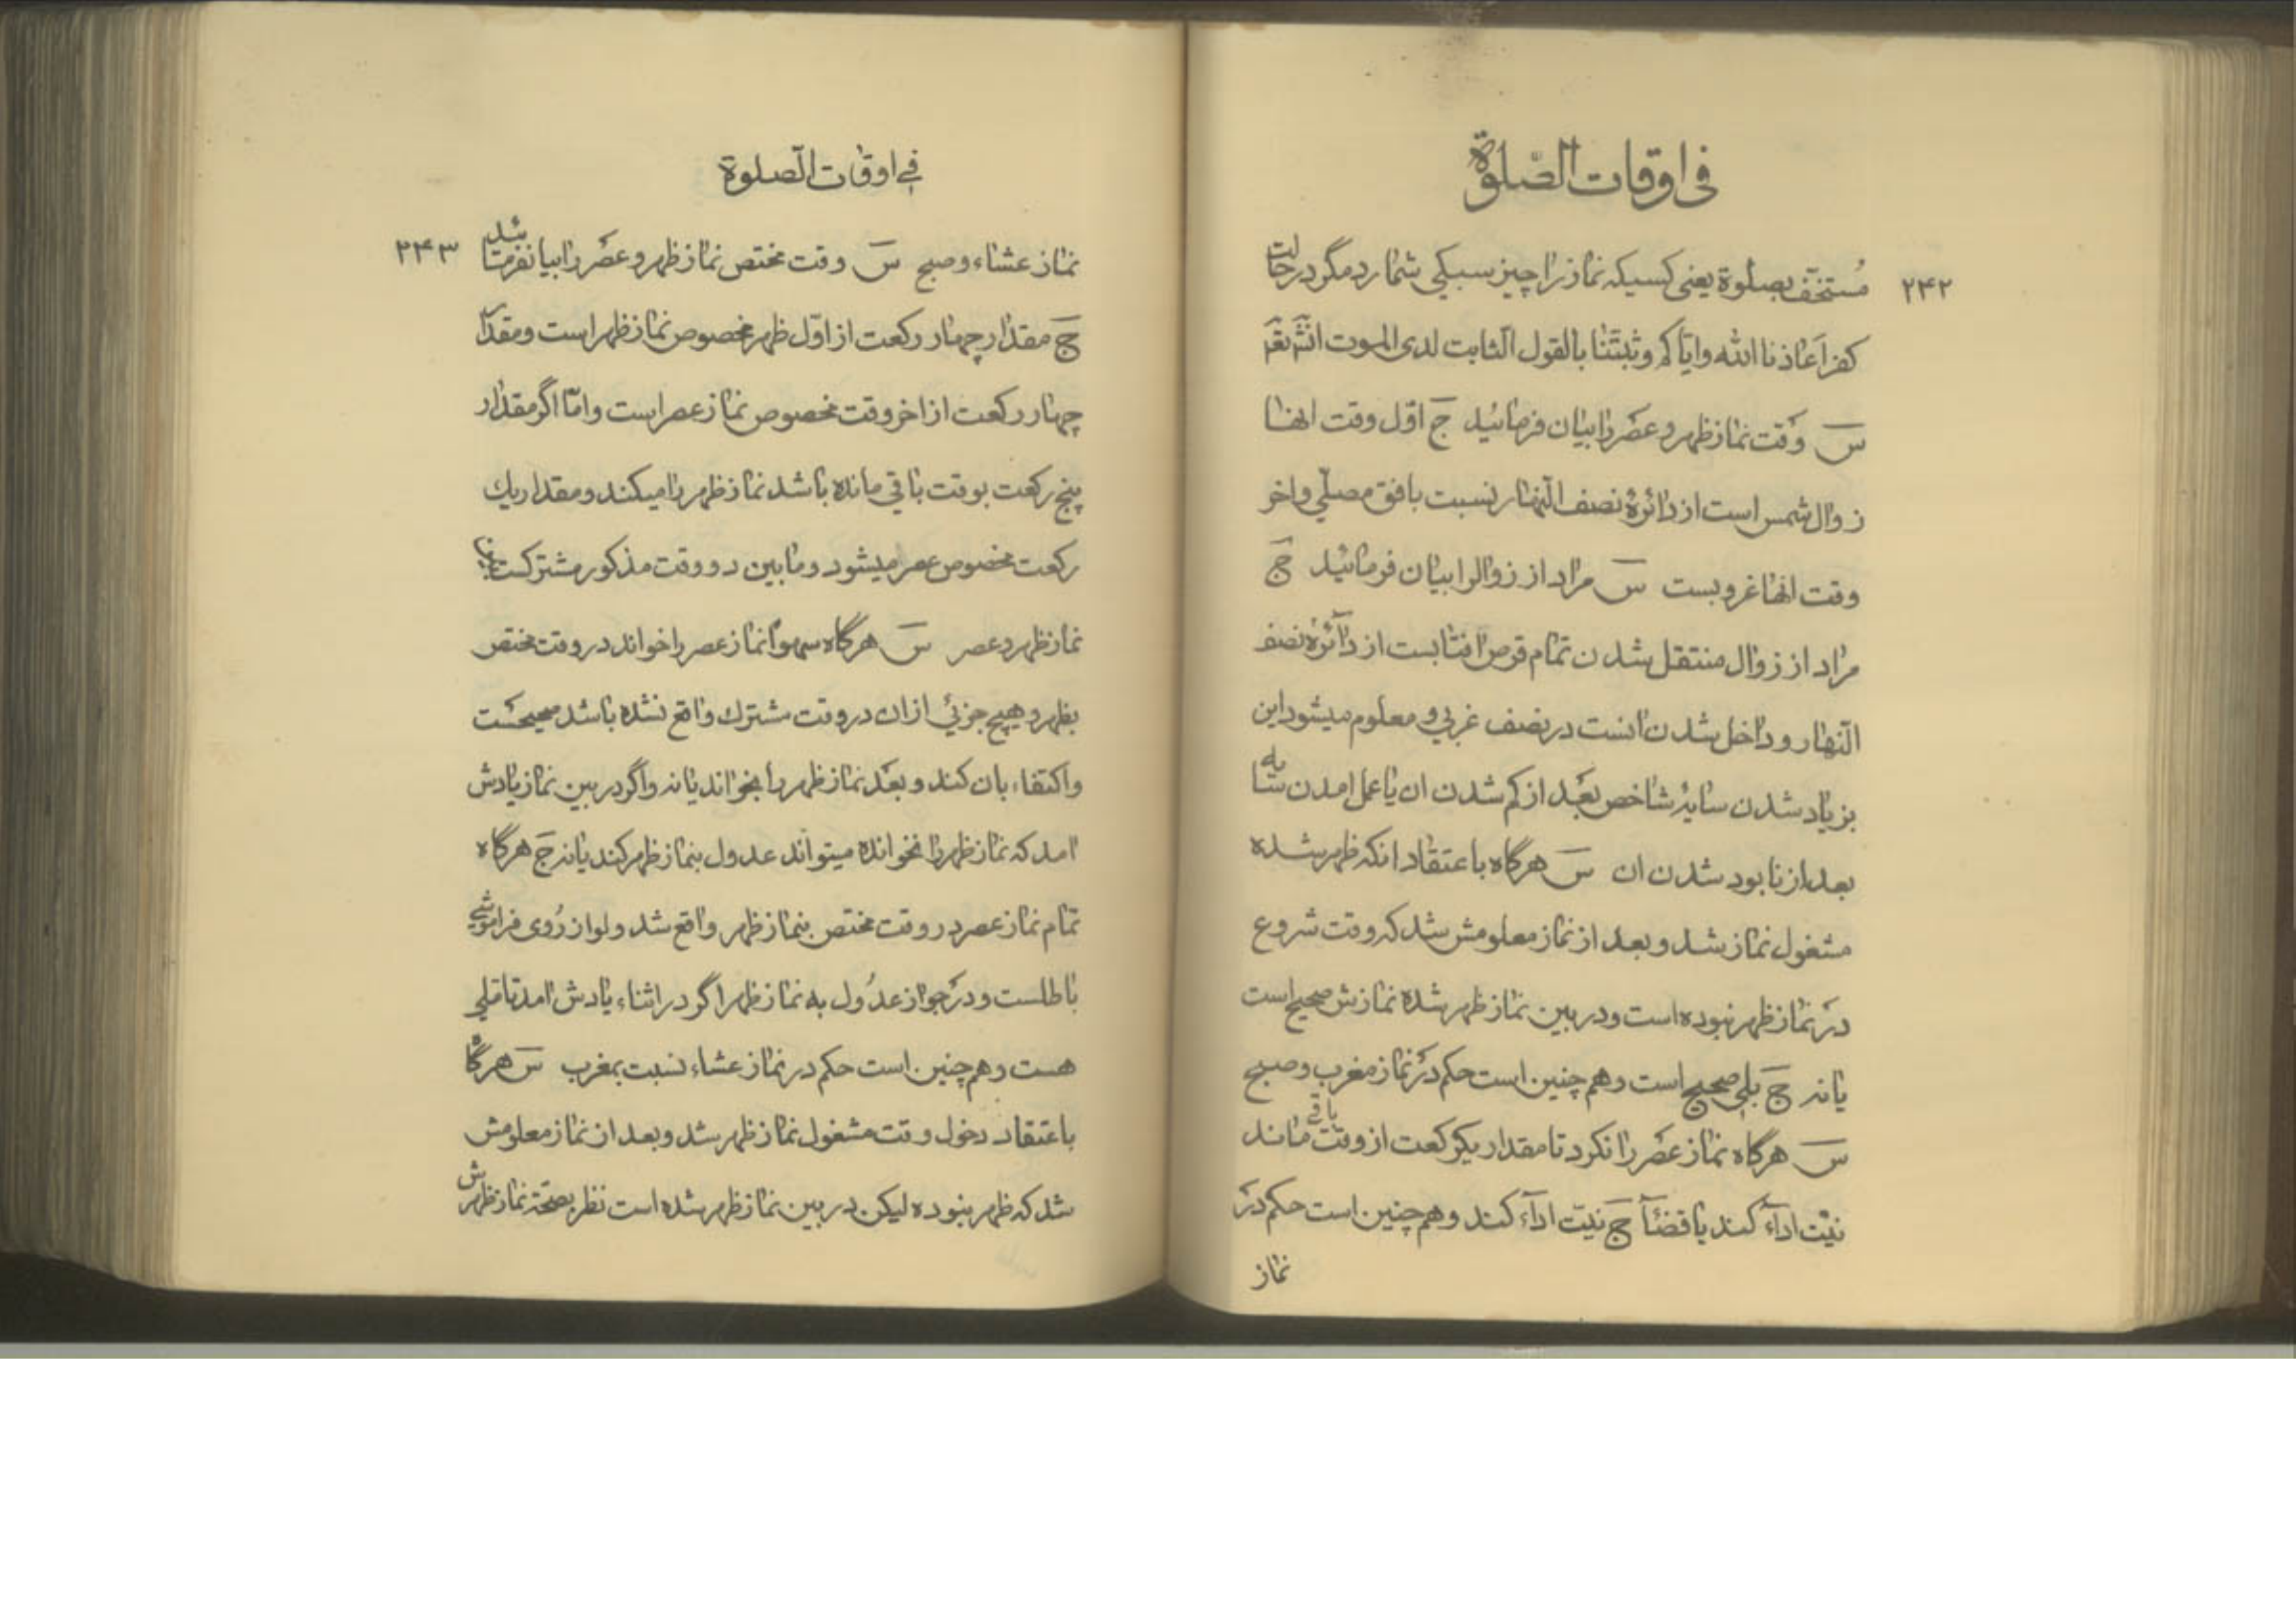 فی اوقات الصّلوة
۲۴۲
مُستخفّ بصلوة یعنی کسیکه نماز را چیز سبکی شمارد مگر در حالت
کفر اَعاذنا الله وایّاکم وثبّتنا بالقول الثّابت لدی الموت انشآء
س وقت نماز ظهر و عصر را بیان فرمائید ج اوّل وقت انها
زوال شمس است از دائرهٔ نصف النّهار نسبت بافق مصلّی واخر
وقت انها غروبست س مراد از زوالرا بیان فرمائید ج
مراد از زوال منتقل شدن تمام قرص افتابست از دائرهٔ نصف
النّهار و داخل شدن انست در نصف غربی و معلوم میشود این
بزیاد شدن سایهٔ شاخص بعد از کم شدن ان یا عمل امدن سایه
بعد از نابود شدن ان س هرگاه باعتقاد انکه ظهر شده
مشغول نماز شد و بعد از نماز معلومش شد که وقت شروع
در نماز ظهر نبوده است و در بین نماز ظهر شده نمازش صحیح است
یا نه ج بلی صحیح است و همچنین است حکم در نماز مغرب و صبح
س هرگاه نماز عصر را نکرد تا مقدار یکرکعت از وقت باقی ماند
نیّت ادآء کند یا قضآء ج نیّت ادآء کند و همچنین است حکم در
نماز
فی اوقات الصّلوة
۲۴۳
نماز عشاء و صبح س وقت مختص نماز ظهر و عصر را بیان فرمائید
ج مقدار چهار رکعت از اوّل ظهر مخصوص نماز ظهر است و مقدار
چهار رکعت از اخر وقت مخصوص نماز عصر است و امّا اگر مقدار
پنج رکعت بوقت باقی مانده باشد نماز ظهر را میکند و مقدار یك
رکعت مخصوص عصر میشود و مابین دو وقت مذکور مشترکست میان
نماز ظهر و عصر س هرگاه سهواً نماز عصر را خواند در وقت مختص
بظهر و هیچ جزئی از ان در وقت مشترك واقع نشده باشد صحیحست
و اکتفاء بان کند و بعد نماز ظهر را بخواند یا نه و اگر در بین نماز یادش
امد که نماز ظهر را نخوانده میتواند عدول بنماز ظهر کند یا نه ج هرگاه
تمام نماز عصر در وقت مختص بنماز ظهر واقع شد ولو از رُوی فراموشی
باطلست و در جواز عدُول به نماز ظهر اگر در اثناء یادش امد تاملی
هست و همچنین است حکم در نماز عشاء نسبت بمغرب س هرگاه
باعتقاد دخول وقت مشغول نماز ظهر شد و بعد از نماز معلومش
شد که ظهر نبوده لیکن در بین نماز ظهر شده است نظر بصحّة نماز ظهرش